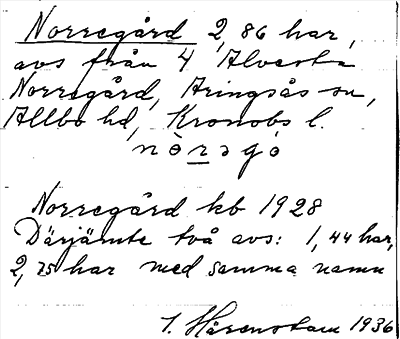 Norregård 2,86 har,
avs från 4 Alvesta
Norregård, Aringsås sn,
Allbo hd, Kronobs l.
nòrəgó
Norregård kb 1928
Därjämte två avs: 1,44 har,
2,75 har med samma namn
I. Hårenstam 1936